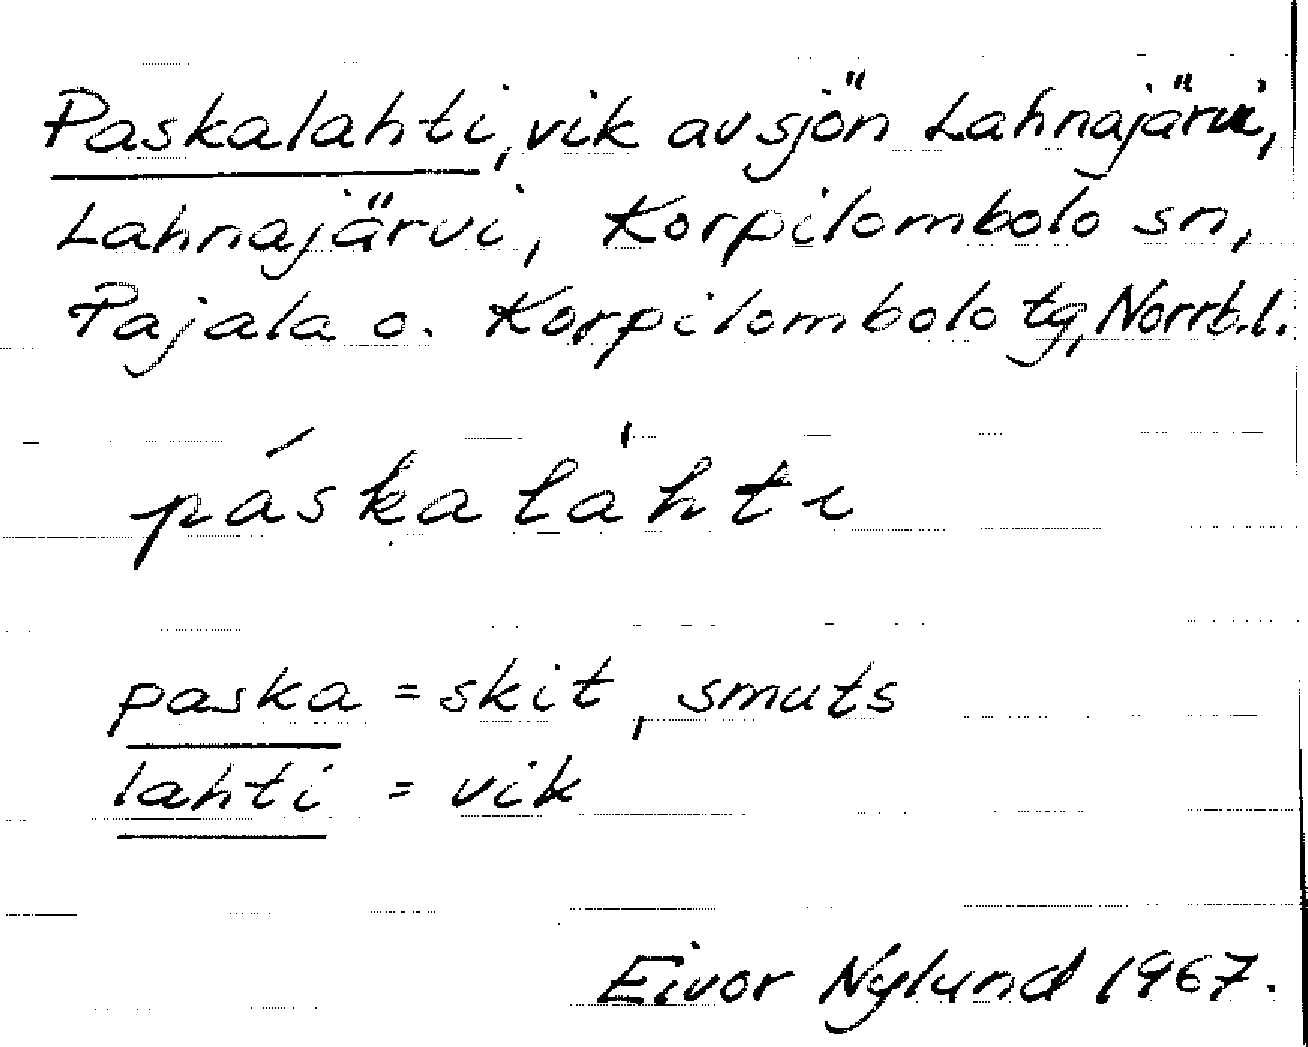 Paskalahti, vik av sjön Lahnajärvi,
Lahnajärvi, Korpilombolo sn,
Pajala o. Korpilombolo tg, Norrb.l.
páskalàhti
paska = skit, smuts
lahti = vik
Eivor Nylund 1967.